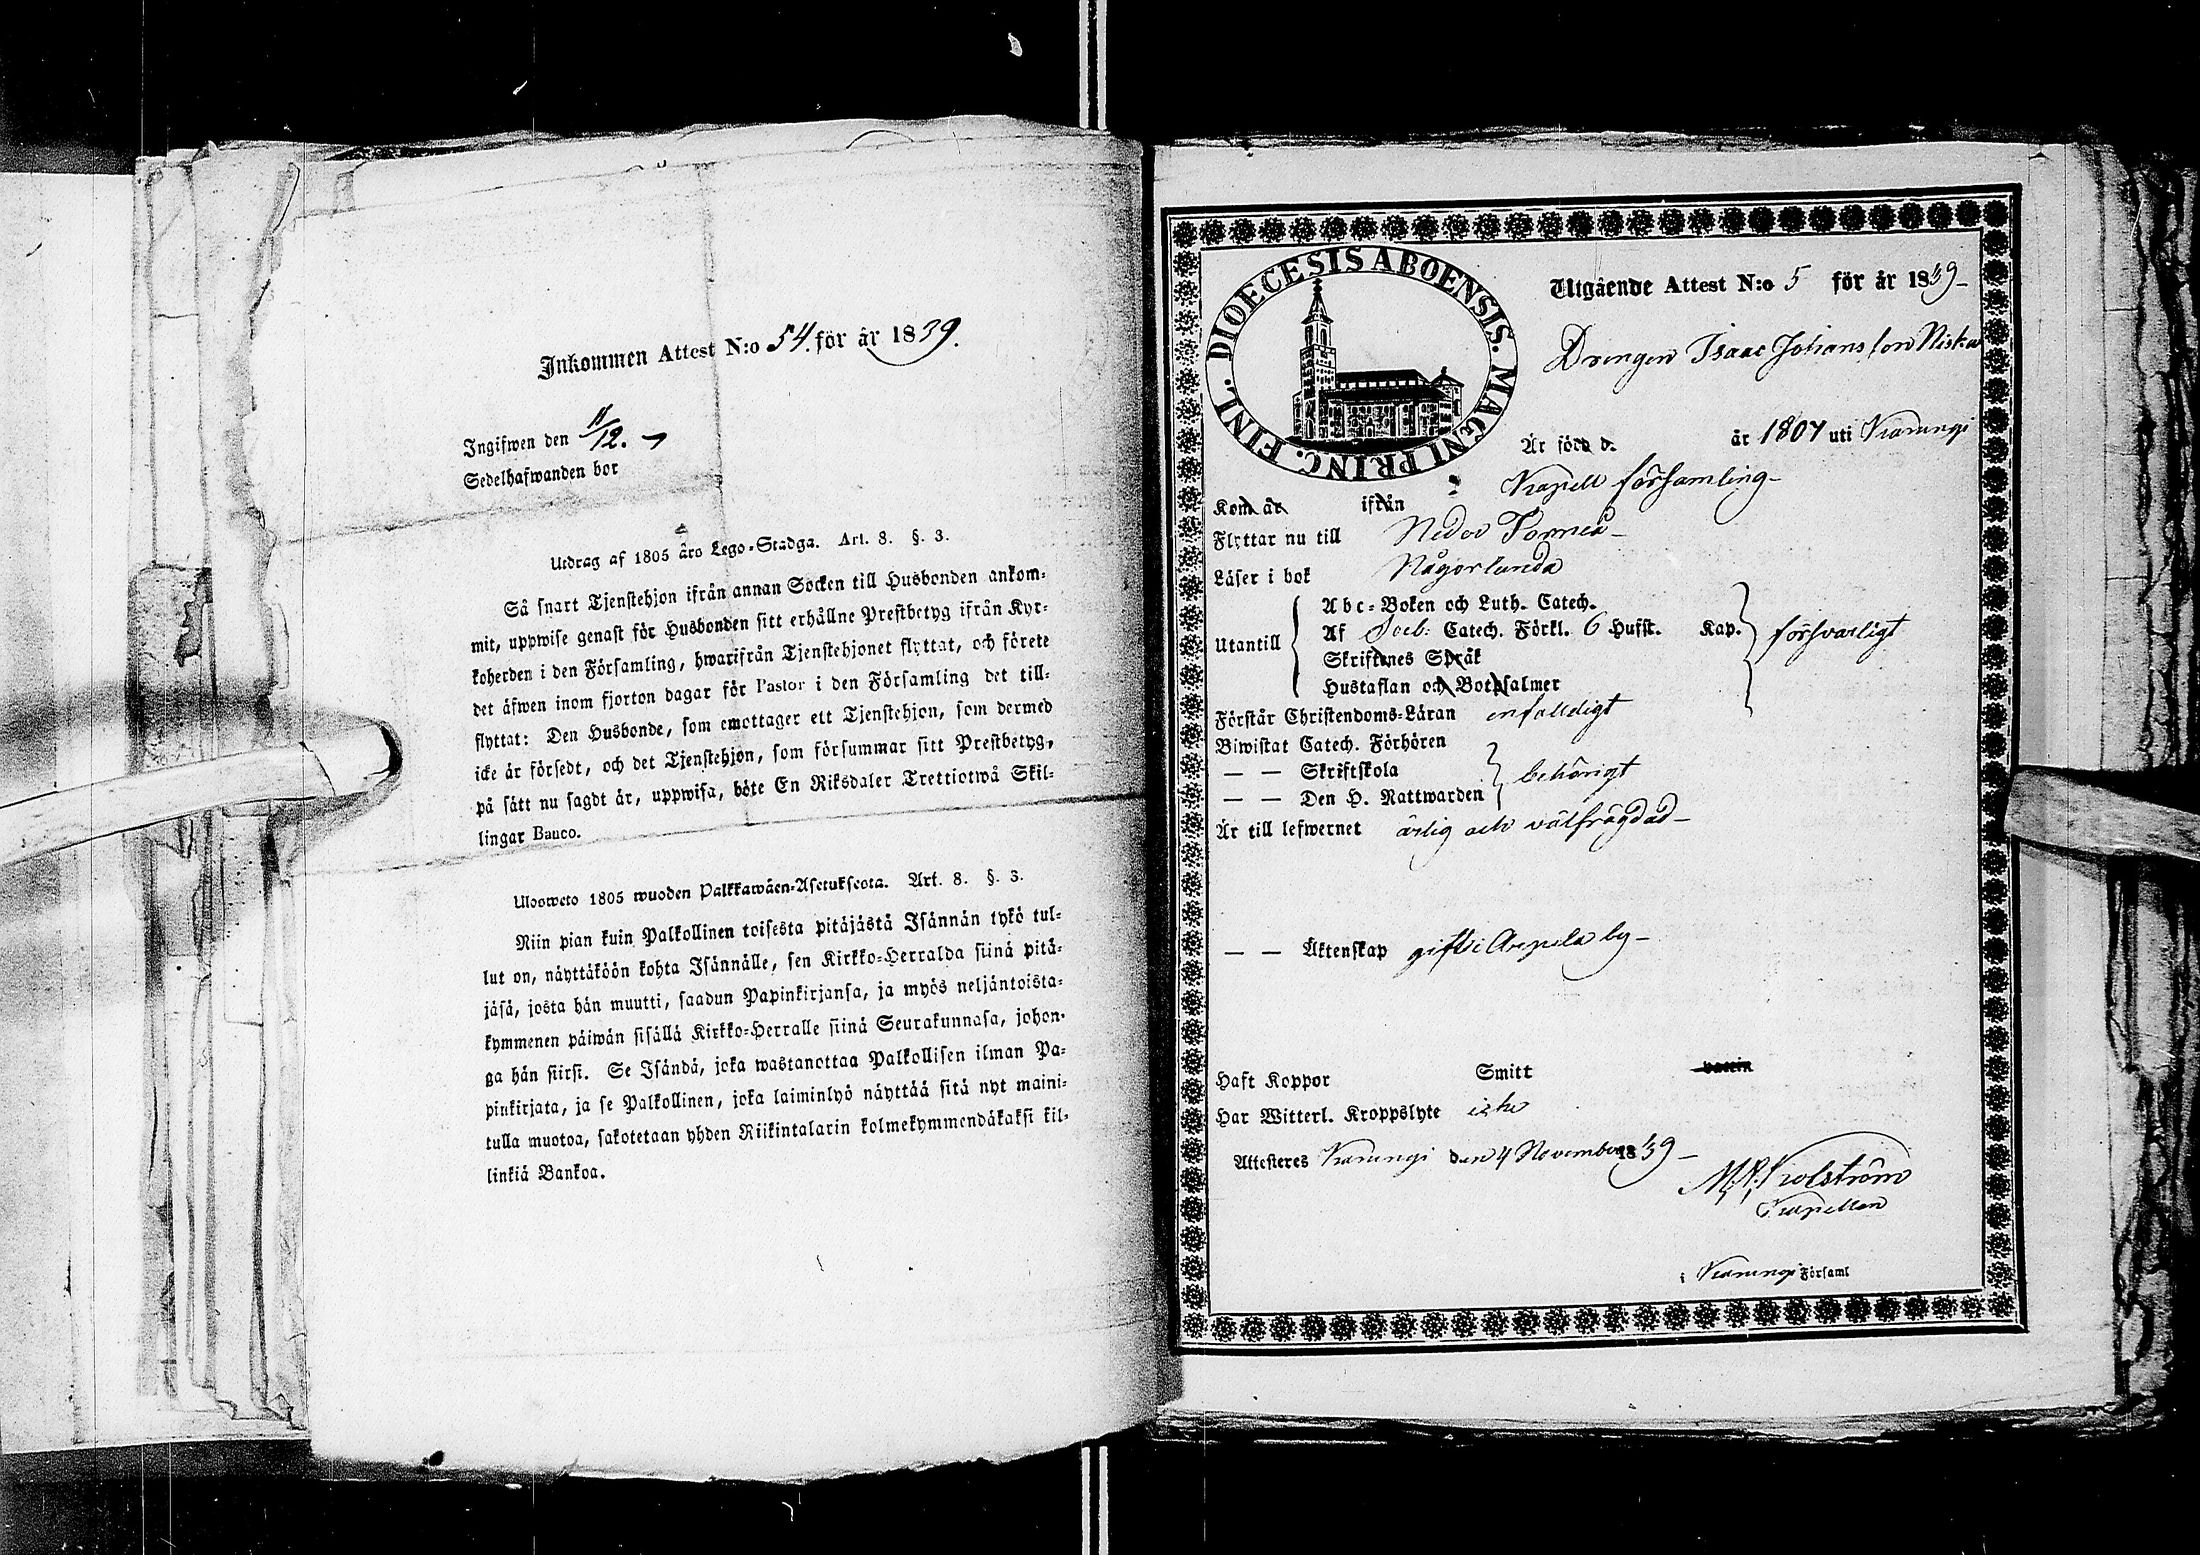 Inkommen Attest N:o 54. för år 1839.
Ingifwen den 11/12.
Sedelhafwanden bor
Utdrag af 1805 års Lego-Stadga. Art. 8. §. 3.
Så snart Tjenstehjon ifrån annan Socken till Husbonden ankom-
mit, uppwise genast för Husbonden sitt erhållne Prestbetyg ifrån Kyr-
koherden i den Församling, hwarifrån Tjenstehjonet flyttat, och förete
det äfwen inom fjorton dagar för Pastor i den Församling det till-
flyttat: Den Husbonde, som emottager ett Tjenstehjon, som dermed
icke är försedt, och det Tjenstehjon, som försummar sitt Prestbetyg,
på sätt nu sagdt är, uppwisa, böte En Riksdaler Trettiotwå Skil-
lingar Banco.
Ulosweto 1805 wuoden Palkkawäen-Asetuksesta. Art. 8. §. 3.
Niin pian kuin Palkollinen toisesta pitäjästä Isännän tykö tul-
lut on, näyttäköön kohta Isännälle, sen Kirkko-Herralda siinä pitä-
jäsä, josta hän muutti, saadun Papinkirjansa, ja myös neljäntoista-
kymmenen päiwän sisällä Kirkko-Herralle siinä Seurakunnasa, johon-
ga hän siirsi. Se Isändä, joka wastanottaa Palkollisen ilman Pa-
pinkirjata, ja se Palkollinen, joka laiminlyö näyttää sitä nyt maini-
tulla muotoa, sakotetaan yhden Riikintalarin kolmekymmendäkaksi kil-
linkiä Bankoa.
DIOECESIS ABOENSIS. MAGNI PRINC. FINL.
Utgående Attest N:o 5 för år 1839
Drengen Isaac Johansson Niska
Är född d. år 1807 uti Karungi
Kapell församling
Kom år ifrån
Flyttar nu till Neder Torneå
Läser i bok Någorlunda
Abc-Boken och Luth. Catech.
Utantill Af Sveb: Catech. Förkl. 6 Hufst. Kap. försvarligt
Skriftenes Språk
Hustaflan och Botpsalmer
Förstår Christendoms-Läran enfaldigt
Biwistat Catech. Förhören
— — Skriftskola behörigt
— — Den H. Nattwarden
Är till lefwernet ärlig och välfrägdad
— — Äktenskap gift i Arpela by
Haft Koppor Smitt vaccin
Har Witterl. Kroppslyte icke
Attesteres Karungi den 4 November 1839
Kapellan
i Karungi Församl